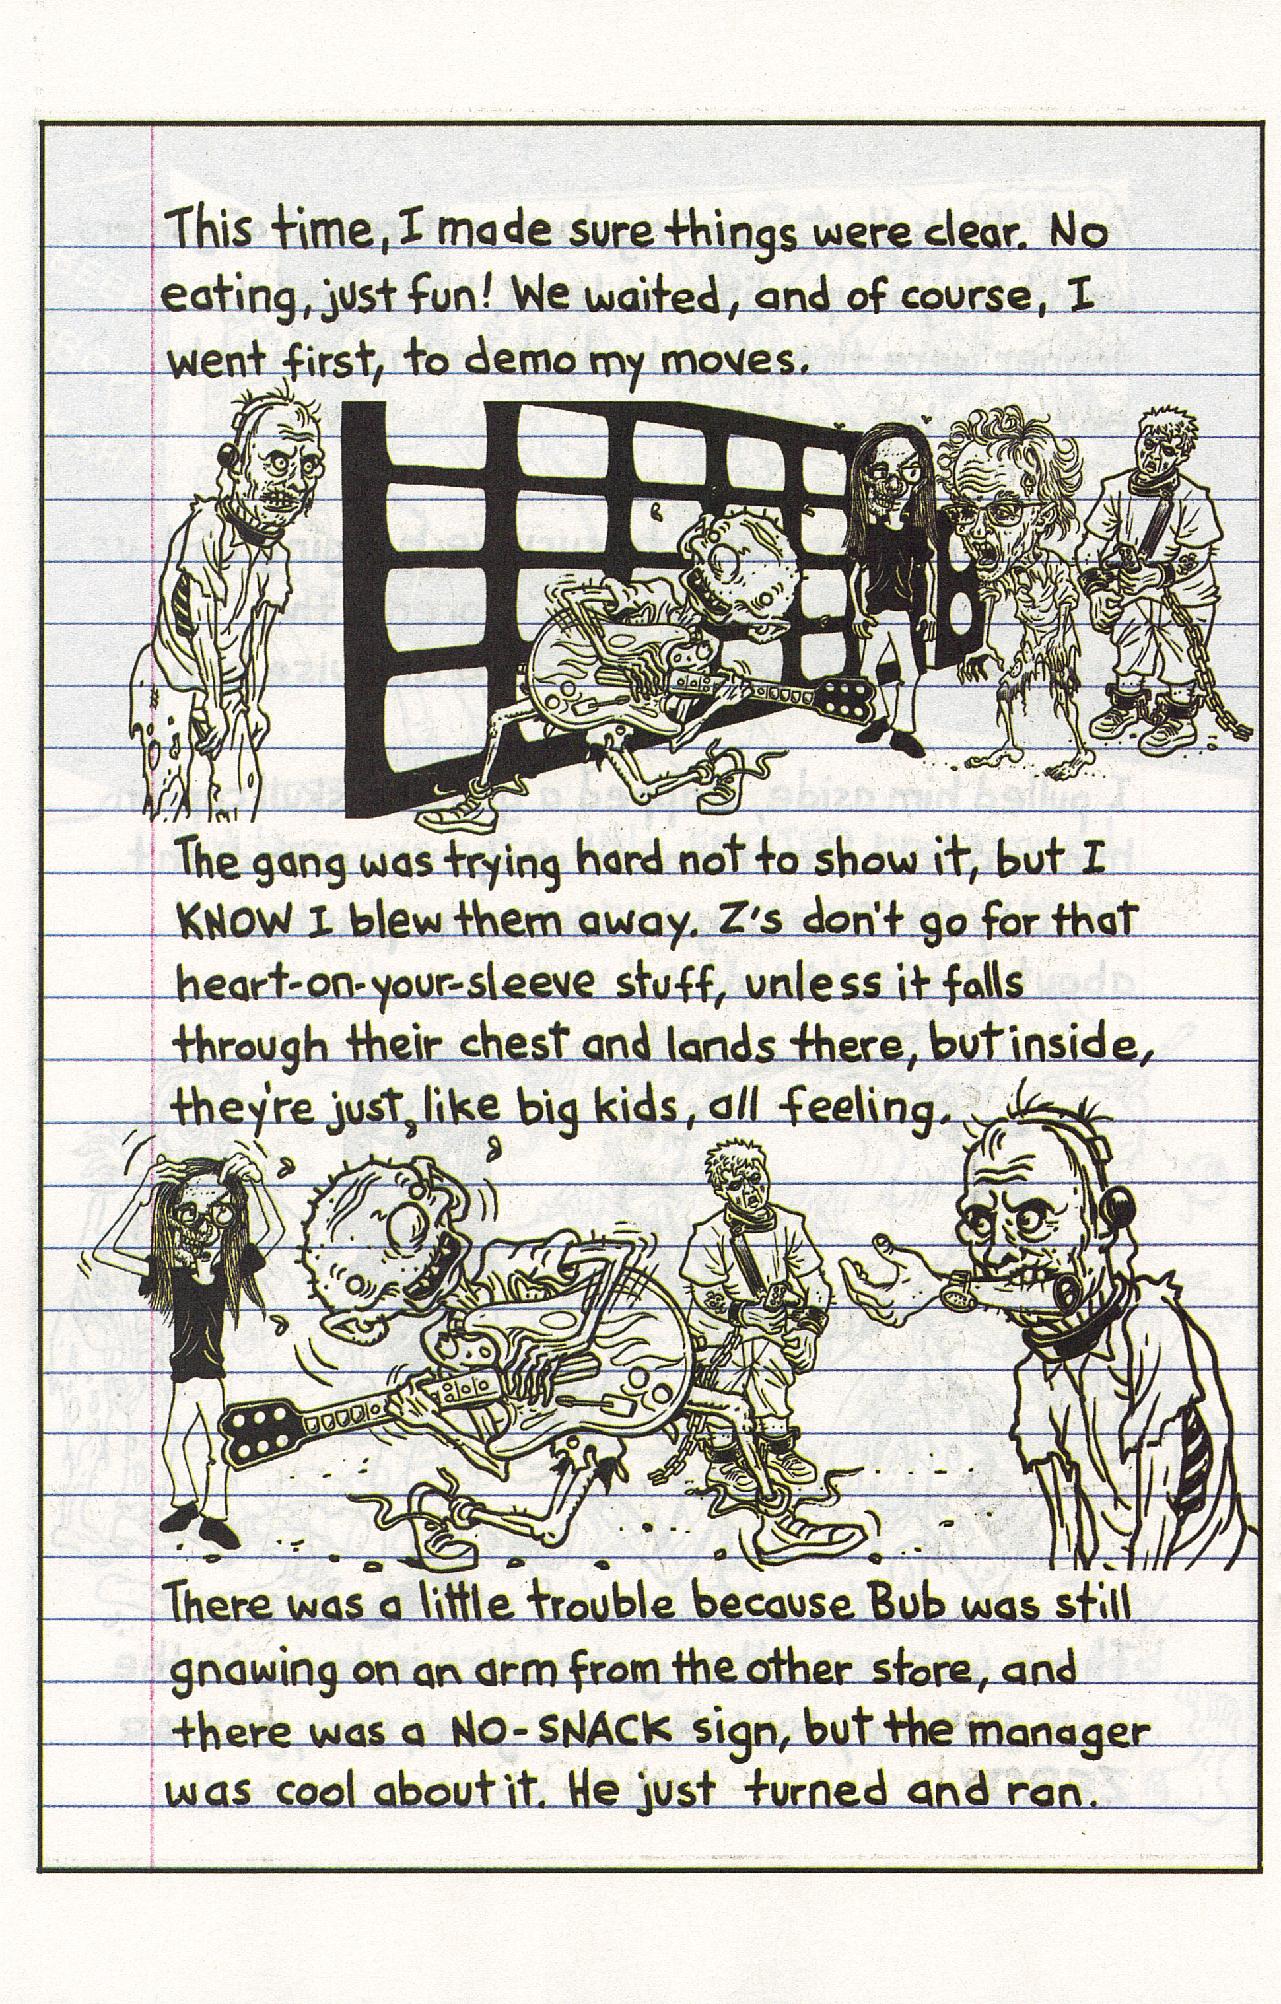 This time, I made sure things were clear. No
eating, just fun! We waited, and of course, I
went first, to demo my moves.
The gang was trying hard not to show it, but I
KNOW I blew them away. Z's don't go for that
heart-on-your-sleeve stuff, unless it falls
through their chest and lands there, but inside,
they're just like big kids, all feeling.
There was a little trouble because Bub was still
gnawing on an arm from the other store, and
there was a NO-SNACK sign, but the manager
was cool about it. He just turned and ran.